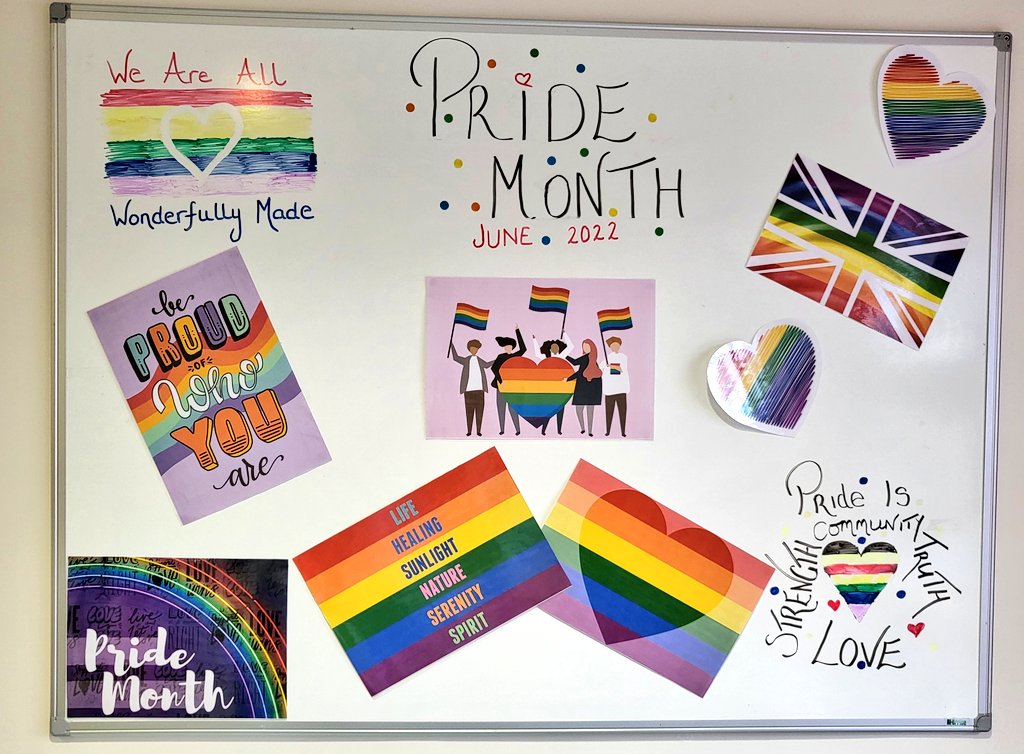 We Are All
Wonderfully Made
PRIDE
MONTH
JUNE 2022
be
PROUD
OF
Who
YOU
are
LIFE
HEALING
SUNLIGHT
NATURE
SERENITY
SPIRIT
Pride
Month
Pride Is
COMMUNITY
STRENGTH
TRUTH
LOVE